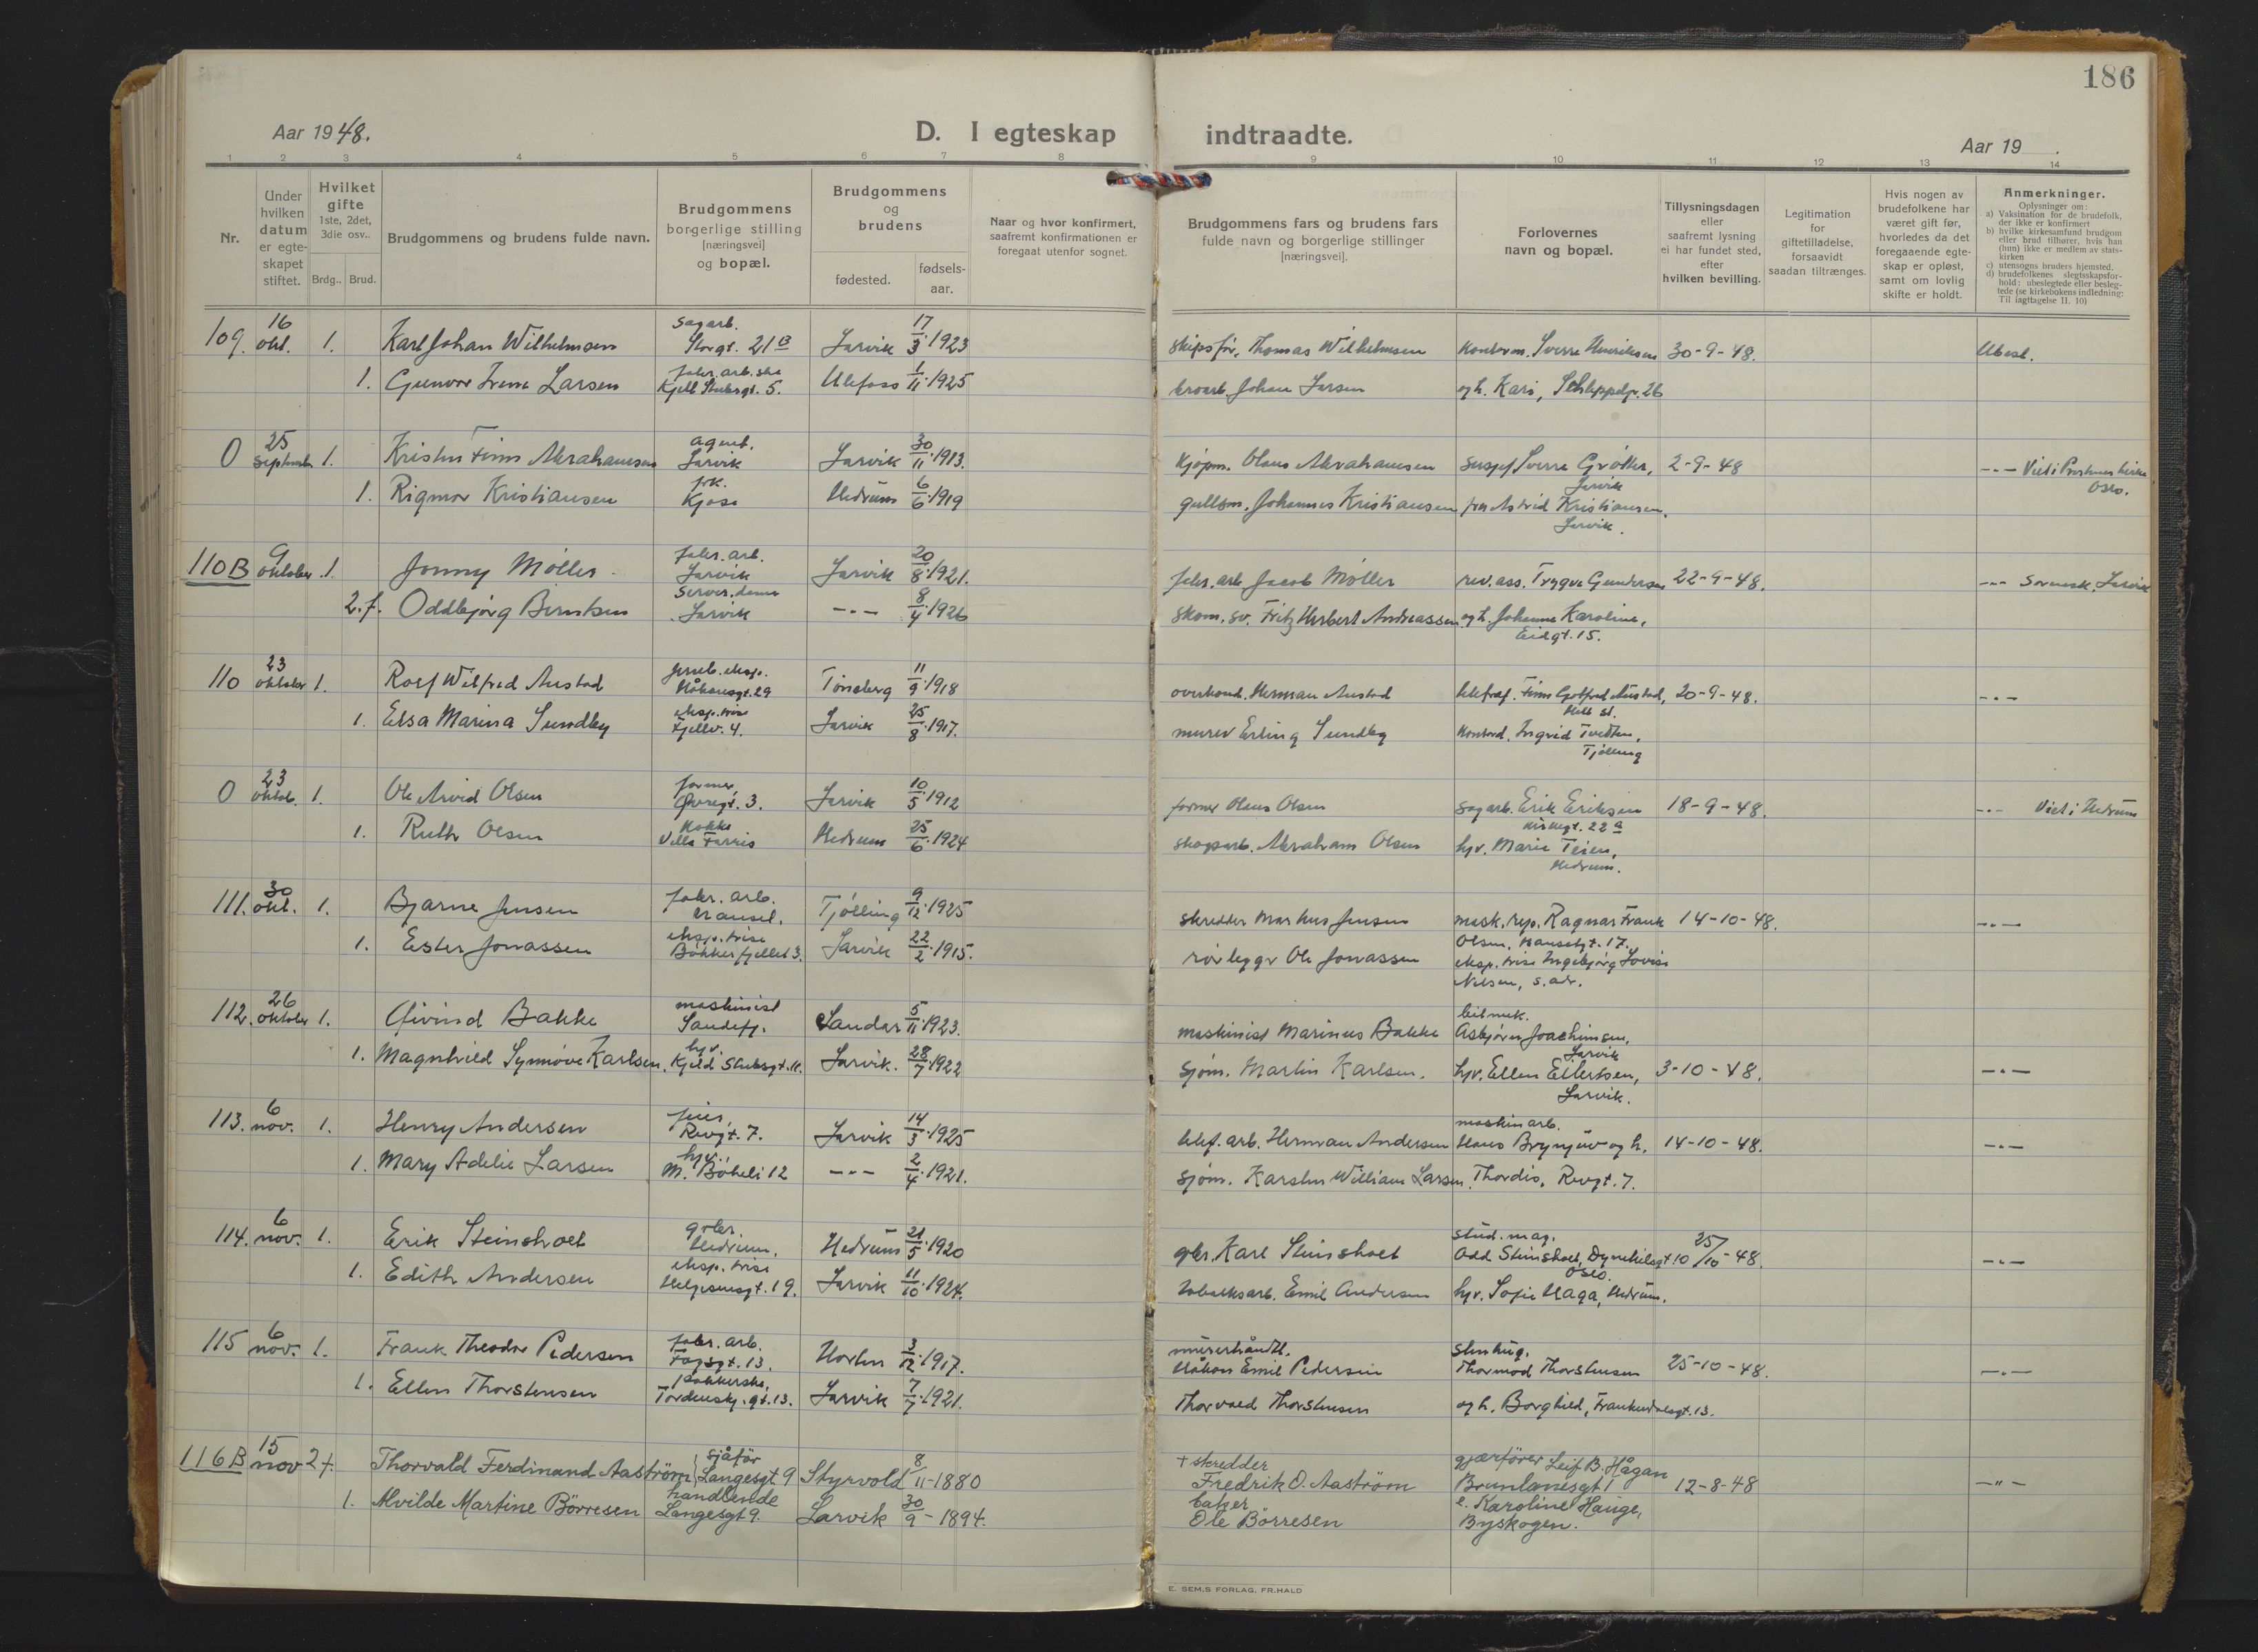 186
Aar 1948.
D. I egteskap indtraadte.
Aar 19 .
1 2 3 4 5 6 7 8 9 10 11 12 13 14
Nr.
Under hvilken datum er egte-skapet stiftet.
Hvilket gifte 1ste, 2det, 3die osv..
Brdg.. Brud.
Brudgommens og brudens fulde navn.
Brudgommens borgerlige stilling [næringsvei] og bopæl.
Brudgommens og brudens
fødested.
fødsels-aar.
Naar og hvor konfirmert, saafremt konfirmationen er foregaat utenfor sognet.
Brudgommens fars og brudens fars fulde navn og borgerlige stillinger [næringsvei].
Forlovernes navn og bopæl.
Tillysningsdagen eller saafremt lysning ei har fundet sted, efter hvilken bevilling.
Legitimation for giftetilladelse, forsaavidt saadan tiltrænges.
Hvis nogen av brudefolkene har været gift før, hvorledes da det foregaaende egte-skap er opløst, samt om lovlig skifte er holdt.
Anmerkninger.
Oplysninger om:
a) Vaksination for de brudefolk, der ikke er konfirmert
b) hvilke kirkesamfund brudgom eller brud tilhører, hvis han (hun) ikke er medlem av stats-kirken
c) utensogns bruders hjemsted.
d) brudefolkenes slegtsskapsfor-hold: ubeslegtede eller besleg-tede (se kirkebokens indledning: Til iagttagelse II. 10)
109. 16 okt. 1. Karl Johan Wilhelmsen sagarb. Storgt. 21 B Larvik 17/3 1923 skipsfør. Thomas Wilhelmsen Sverre Henriksen 30-9-48. Ubesl.
1. Gunvor Irene Larsen Ulefoss 1/11 1925 Johan Larsen og h. Kari,
0 25 septemb. 1. Kristen Finn Abrahamsen agent. Larvik Larvik 30/11 1913. kjøpm. Olaus Abrahamsen Sverre Grøtter, Larvik 2-9-48 Oslo.
1. Rigmor Kristiansen frk. Kjose Hedrum 6/6 1919 gullsm. Johannes Kristiansen fru Astrid Kristiansen, Larvik.
110B 9 oktober 1. Jonny Møller fabr. arb. Larvik Larvik 20/8 1921. fabr. arb. Jacob Møller rev. ass. Trygve Gundersen 22-9-48. Sorensk. Larvik
2.f. Oddbjørg Berntsen Server. dame Larvik -"- 8/4 1926 skom. sv. Fritz Herbert Andreassen og h. Johanne Karoline, Eidgt. 15.
110 23 oktober 1. Rolf Wilfred Austad Håkonsgt. 29 Tønsberg 11/9 1918 Herman Austad Finn Gotfred Austad, 20-9-48. -"-
1. Elsa Marina Sundby eksp. trise Fjellv. 4. Larvik 25/8 1917. murer Erling Sundby Ingrid Tvedten, Tjølling
0 23 oktob. 1. Ole Arvid Olsen former, Øvregt. 3. Larvik 10/5 1912 former Olaus Olsen sagarb. Erik Eriksen Kirkegt. 22 a 18-9-48. -"- Viet i Hedrum
1. Ruth Olsen Kokke Villa Farris Hedrum 25/6 1924 skogsarb. Abraham Olsen hjv. Marie Teien, Hedrum.
111. 30 okt. 1. Bjarne Jensen fabr. arb. Tjølling 9/12 1925 skredder Markus Jensen mask. rep. Ragnar Frank Olsen, 14-10-48. -"-
1. Ester Jonassen eksp. trise Bøkkerfjellet 3. Larvik 22/2 1915. rørlegger Ole Jonassen eksp. trise Ingebjørg Lovise Nilsen, s. adr.
112. 26 oktober 1. Øivind Bakke maskinist Sandefj. Sandar 5/11 1923. maskinist Marinus Bakke Asbjørn Joachimsen, Larvik
1. Magnhild Synnøve Karlsen. hjv. Kjeld Stubsgt. Larvik. 28/7 1922 Sjøm. Martin Karlsen. hjv. Ellen Ellertsen, Larvik. 3-10-48. -"-
113. 6 nov. 1. Henry Andersen Revgt. 7. Larvik 14/3 1925 Herman Andersen maskinarb. Hans Brynjuv og h. 14-10-48. -"-
1. Mary Adelie Larsen hjv. M. Bøkeli 12 -"- 2/4 1921. Sjøm. Karsten William Larsen. Thordis, Revgt. 7.
114. 6 nov. 1. Erik Steinsholt gbr. Hedrum. Hedrum 21/5 1920 gbr. Karl Steinsholt stud. mag. Odd Steinsholt, Dynekilsgt 10 Oslo. 25/10-48. -"-
1. Edith Andersen eksp. trise Helgesensgt. 19. Larvik 11/10 1924. tobakksarb. Emil Andersen hjv. Sofie Haga, Hedrum.
115 6 nov. 1. Frank Theodor Pedersen fabr. arb. Fayesgt. 13. Horten 3/12 1917. murerhåndtl. Håkon Emil Pedersen stenhug. Thormod Thorstensen 25-10-48. -"-
1. Ellen Thorstensen pakkerske, Tordenskj. gt. 13. Larvik 7/7 1921. Thorvald Thorstensen og h. Borghild,
116B 15 nov 2f. Thorvald Ferdinand Aaström sjåför Langesgt 9 Styrvold 8/11-1880 + skredder Fredrik O. Aaström gjærfører Leif B. Hågan Brunlanesgt 1 12-8-48 -"-
1. Alvilde Martine Börresen handlende Langesgt 9. Larvik 30/9-1894. baker Ole Börresen e. Karoline Hauge, Byskogen.
E. SEM.S FORLAG, FR.HALD